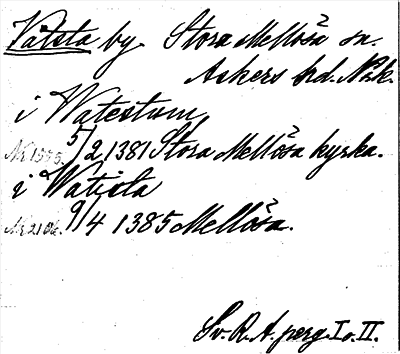 Vätsta by. Stora Mellösa sn.
Askers hrd. Närk.
i Watestum
Nr 1555. 5/2 1381 Stora Mellösa kyrka.
i Watista
Nr 2106. 9/4 1385 Mellösa.
Sv. R. A. perg. I o. II.